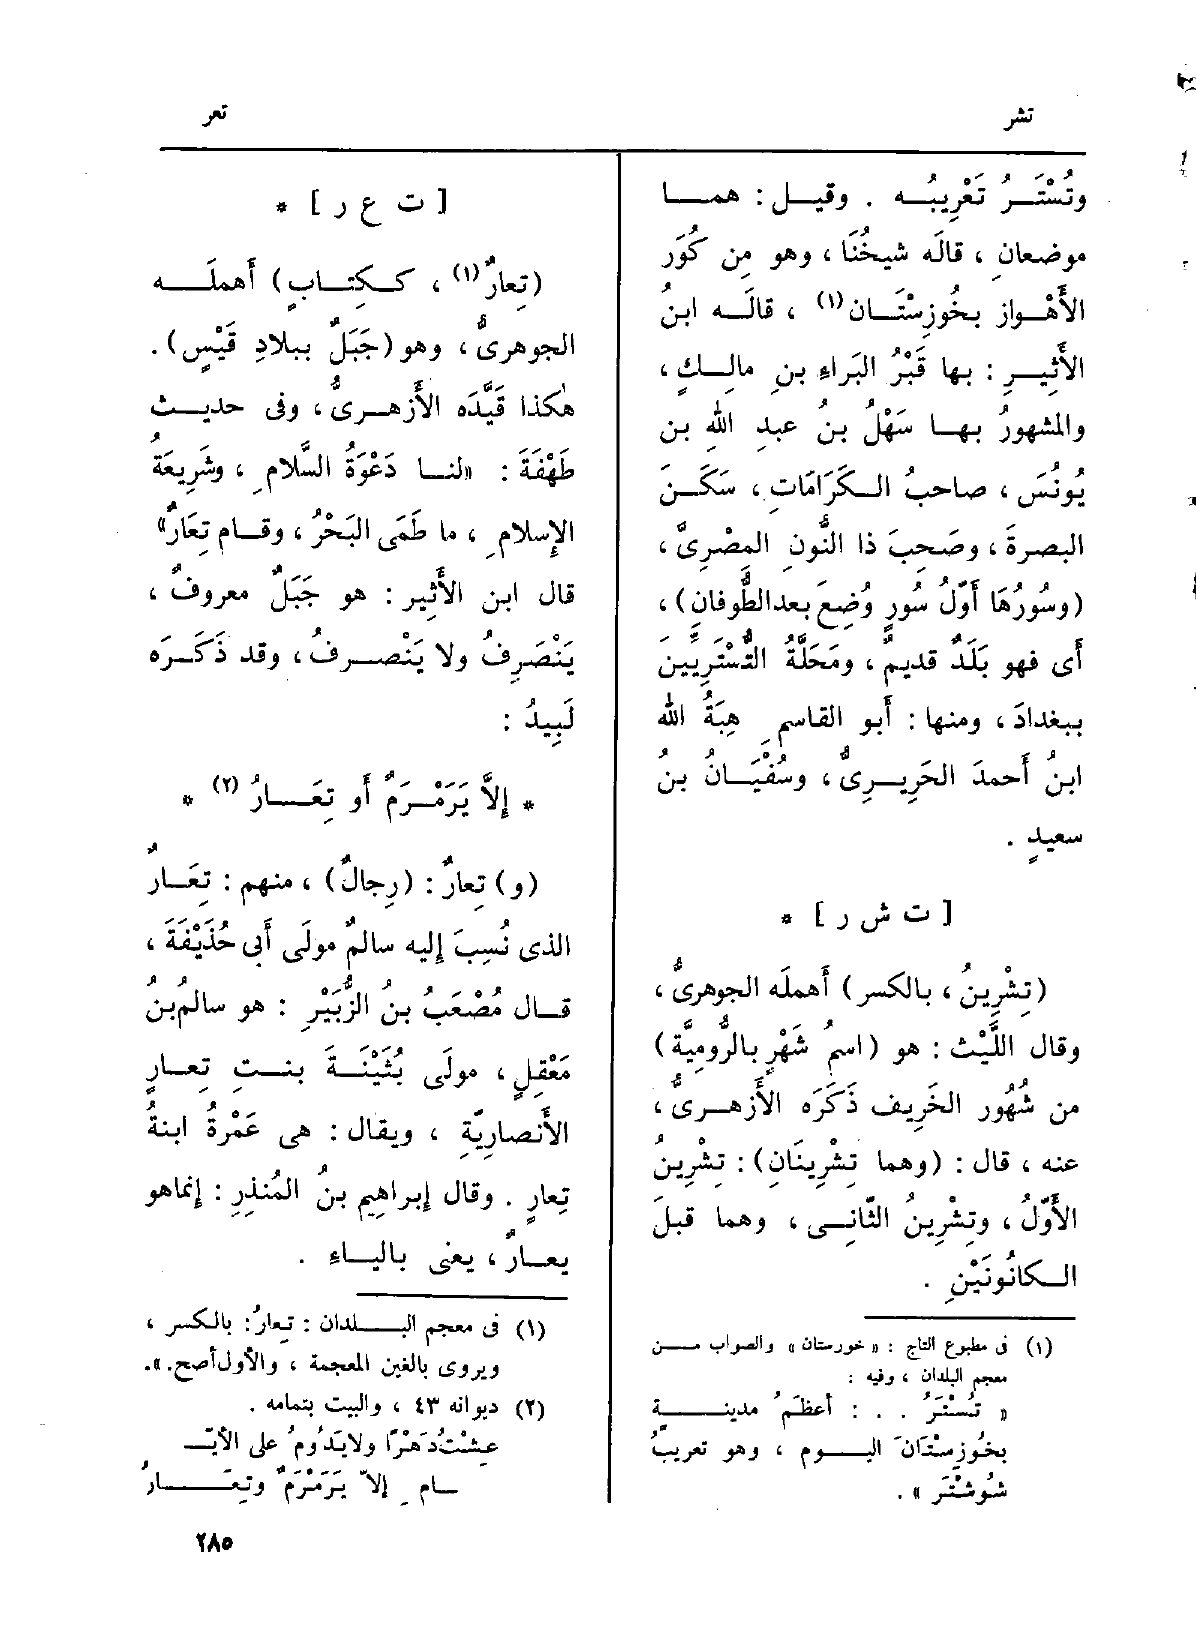 تشر
تعر
وتُسْتَـرُ تَعْرِيبُـه . وقيـل : همـا
موضعانِ ، قالَه شيخُنَا ، وهو مِن كُوَرِ
الأَهْـوازِ بخُوزِسْتَـان(١) ، قالَـه ابنُ
الأَثِيـرِ : بها قَبْرُ البَراءِ بنِ مالِـكٍ ،
والمشهورُ بهـا سَهْلُ بنُ عبدِ اللهِ بن
يُونُسَ ، صاحبُ الـكَرَامَاتِ ، سَكَـنَ
البصرةَ ، وصَحِبَ ذا النُّونِ المِصْرِىَّ ،
(وسُورُهَا أَوّلُ سُورٍ وُضِعَ بعدالطُّوفانِ) ،
أَى فهو بَلَدٌ قديمٌ ، ومَحَلَّةُ التُّسْتَرِيِّينَ
ببغدادَ ، ومنها : أَبو القاسمِ هِبَةُ الله
ابنُ أَحمدَ الحَرِيـرِىُّ ، وسُفْيَـانُ بنُ
سعيدٍ .
[ ت ش ر ] *
(تِشْرِينُ ، بالكسر) أَهمله الجوهرىُّ ،
وقال اللَّيْث : هو (اسمُ شَهْرٍ بالرُّومِيَّة)
من شُهُور الخَرِيف ذَكَرَه الأَزهـرىُّ ،
عنه ، قال : (وهما تِشْرِينَانِ) : تِشْرِينُ
الأَوّلُ ، وتِشْرِينُ الثّانِـى ، وهما قبلَ
الـكانُونَيْنِ .
(١) فى مطبوع التاج : « خورستان » والصواب مـن
معجم البلدان ، وفيه :
« تُسْتَرُ . . : أعظَمُ مدينـة
بخُوزِسْتَانَ اليـوم ، وهو تعريبُ
شُوشْتَر » .
[ ت ع ر ] *
(تِعارٌ(١) ، كـكِتـابٍ) أَهملَـه
الجوهرىُّ ، وهو (جَبَلٌ ببلادِ قَيْسٍ) .
هكذا قَيَّدَه الأَزهـرىُّ ، وفى حديـث
طَهْفَةَ : «لنـا دَعْوَةُ السَّلامِ ، وشَرِيعَةُ
الإِسلامِ ، ما طَمَى البَحْرُ ، وقـام تِعَارٌ»
قال ابن الأَثير : هو جَبَلٌ معروفٌ ،
يَنْصَرِفُ ولا يَنْصـرفُ ، وقد ذَكَـرَه
لَبِيدُ :
* إِلاَّ يَرَمْـرَمٌ أَو تِعَـارُ (٢) *
(و) تِعارٌ : (رِجالٌ) ، منهم : تِعَـارٌ
الذى نُسِبَ إِليه سالمٌ مولَى أَبى حُذَيْفَةَ ،
قـال مُصْعَبُ بنُ الزُّبَيْرِ : هو سالمُ بنُ
مَعْقِلٍ ، مولَى بُثَيْنَـةَ بنـتِ تِعـارٍ
الأَنصارِيّةِ ، ويقال : هى عَمْرةُ ابنةُ
تِعارٍ . وقال إِبراهِيم بنُ المُنذِرِ : إِنماهو
يعـارٌ ، يعنى باليـاءِ .
(١) فى معجم البـلدان : تِعارُ : بالكسر ،
ويروى بالغين المعجمة ، والأولأصح.».
(٢) ديوانه ٤٣ ، والبيت بتمامه .
عِشْتُ دَهْرًا ولايَدُومُ على الأيّـ
ـامِ إلاّ يَرَمْرَمٌ وتِعَـارُ
٢٨٥